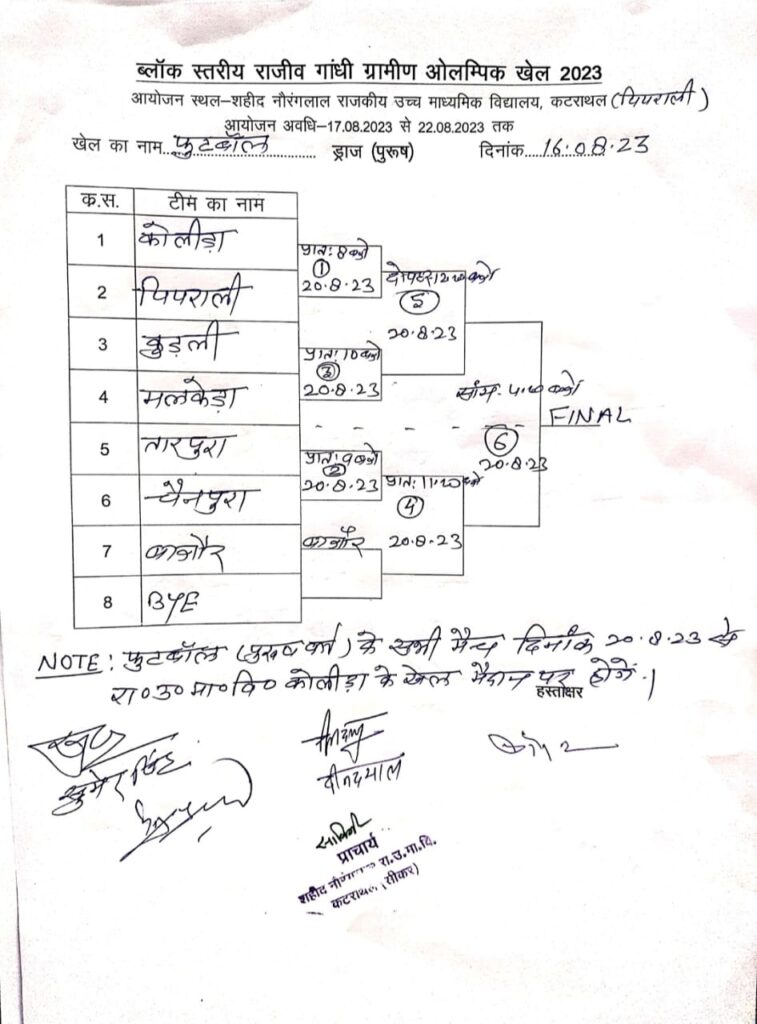 ब्लॉक स्तरीय राजीव गांधी ग्रामीण ओलम्पिक खेल 2023
आयोजन स्थल–शहीद नौरंगलाल राजकीय उच्च माध्यमिक विद्यालय, कटराथल (पिपराली)
आयोजन अवधि–17.08.2023 से 22.08.2023 तक
खेल का नाम..फुटबॉल.......... ड्राज (पुरूष) दिनांक..16.08.23
क.स. टीम का नाम
1 कोलीड़ा
प्रातः 8 बजे
①
20.8.23
2 पिपराली
दोपहर 2:00 बजे
⑤
20.8.23
3 कुड़ली
प्रातः 10 बजे
③
20.8.23
4 मलकेड़ा
सांय: 4:00 बजे
FINAL
⑥
20.8.23
5 तारपुरा
प्रातः 9 बजे
②
20.8.23
6 चैनपुरा
प्रातः 11:20 बजे
④
20.8.23
7 काजीर
काजीर
8 BYE
NOTE: फुटबॉल (पुरुष वर्ग) के सभी मैच दिनांक 20.8.23 को
रा०उ०मा०वि० कोलीड़ा के खेल मैदान पर होगें।
हस्ताक्षर
सुमेर सिंह
दीनदयाल
प्राचार्य
शहीद रा.उ.मा.वि.
कटराथल (सीकर)